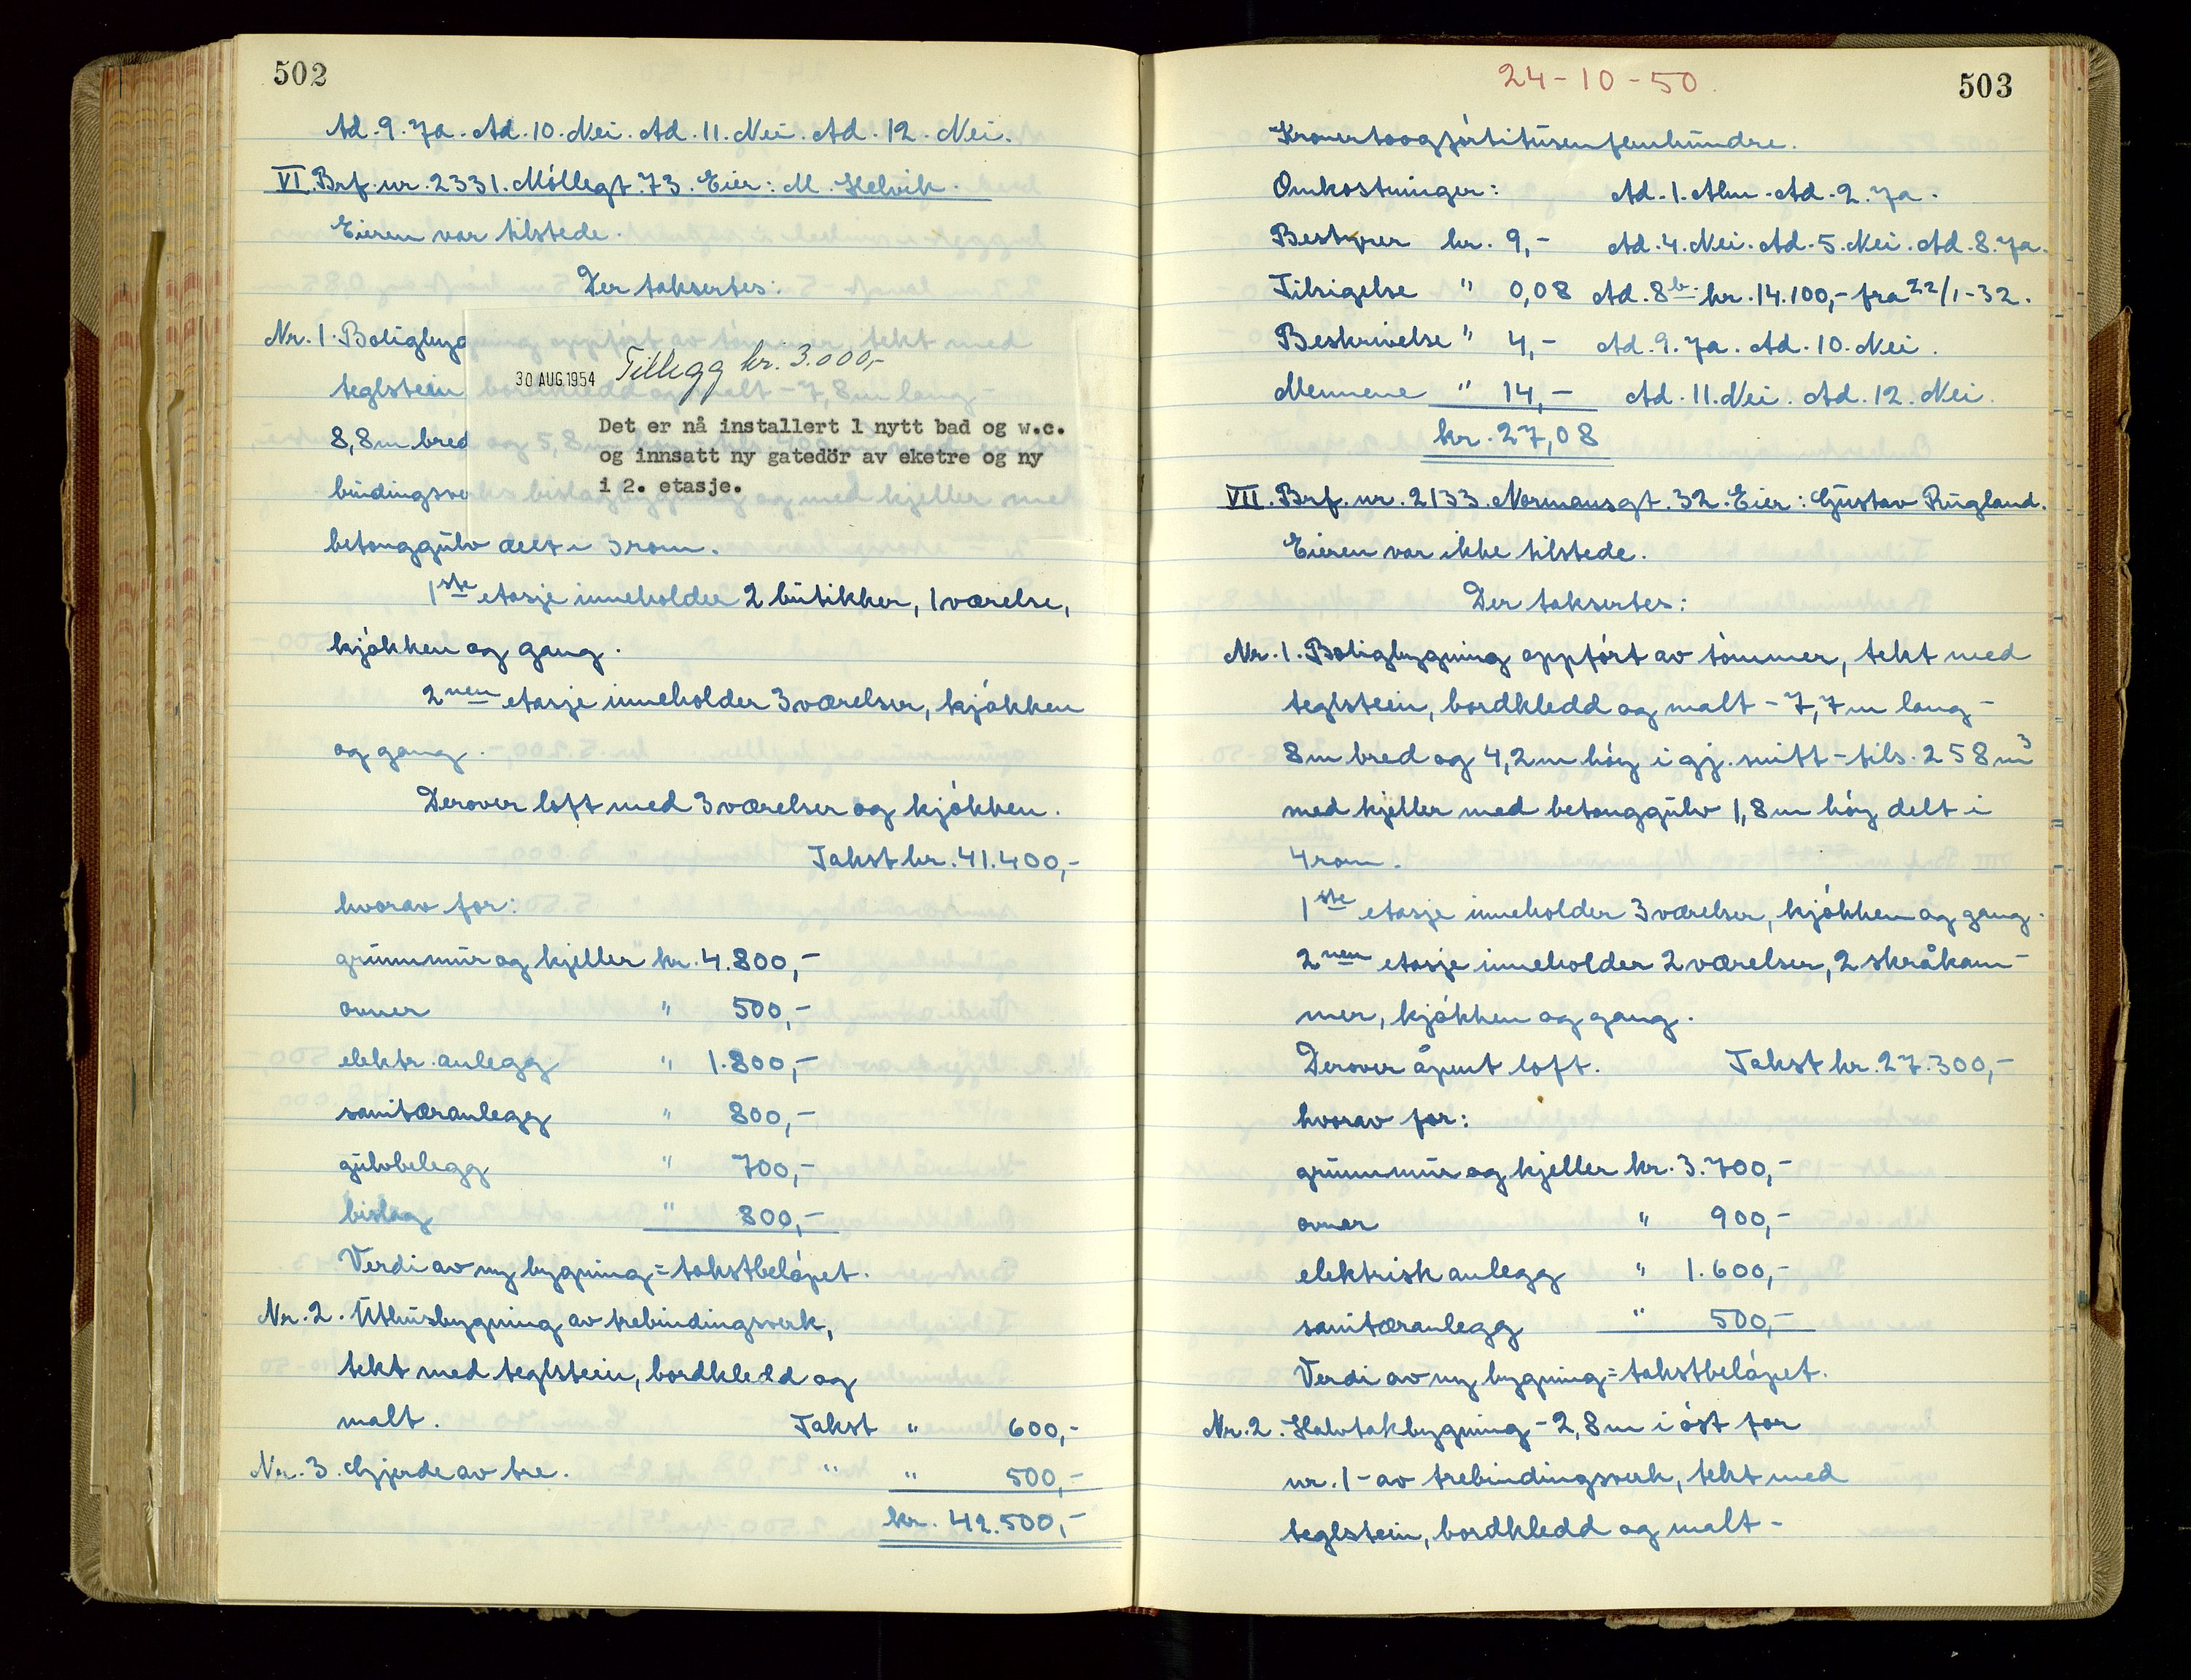 502
Ad. 9. Ja. Ad. 10. Nei. Ad. 11. Nei. Ad. 12. Nei.
VI. Brf. nr. 2331. Möllegt. 73. Eier: M. Helvik.
Eieren var tilstede.
Der taksertes:
Nr. 1. Boligbyg
teglstein
8,8 m bred
bindingsve
30 AUG 1954 Tillegg kr. 3.000,-
Det er nå installert 1 nytt bad og w.c.
og innsatt ny gatedör av eketre og ny
i 2. etasje.
betonggulv delt i 3 rom.
1ste etasje inneholder 2 butikker, 1 værelse,
kjökken og gang.
2nen etasje inneholder 3 værelser, kjökken
og gang.
Derover loft med 3 værelser og kjökken.
Takst kr. 41.400,-
hvorav for:
grunnmur og kjeller kr. 4.800,-
ovner " 500,-
elektr. anlegg " 1.800,-
sanitæranlegg " 800,-
gulvbelegg " 700,-
bislag " 800,-
Verdi av ny bygning = takstbelöpet.
Nr. 2. Uthusbygning av trebindingsverk,
tekt med teglstein, bordkledd og
malt. Takst " 600,-
Nr. 3. Gjerde av tre. " " 500,-
kr. 42.500,-
24-10-50.
503
Kronertoogförtitusenfemhundre.
Omkostninger: Ad. 1. Alm. Ad. 2. Ja.
Bestyrer kr. 9,- Ad. 4. Nei. Ad. 5. Nei. Ad. 8. Ja.
Tilsigelse " 0,08 Ad. 8b. kr. 14.100,- fra 22/1-32.
Beskrivelse " 4,- Ad. 9. Ja. Ad. 10. Nei.
Mennene " 14,- Ad. 11. Nei. Ad. 12. Nei.
kr. 27,08
VII. Brf. nr. 2133. Normansgt. 32. Eier: Gustav Rugland.
Eieren var ikke tilstede.
Der taksertes:
Nr. 1. Boligbygning oppfört av tömmer, tekt med
teglstein, bordkledd og malt - 7,7 m lang -
8 m bred og 4,2 m höy i gj. snitt - tils. 258 m3
med kjeller med betonggulv 1,8 m höy delt i
4 rom.
1ste etasje inneholder 3 værelser, kjökken og gang.
2nen etasje inneholder 2 værelser, 2 skråkam-
mer, kjökken og gang.
Derover åpent loft. Takst kr. 27.300,-
hvorav for:
grunnmur og kjeller kr. 3.700,-
ovner " 900,-
elektrisk anlegg " 1.600,-
sanitæranlegg " 500,-
Verdi av ny bygning = takstbelöpet.
Nr. 2. Halvtakbygning - 2,8 m i öst for
nr. 1 - av trebindingsverk, tekt med
teglstein, bordkledd og malt -